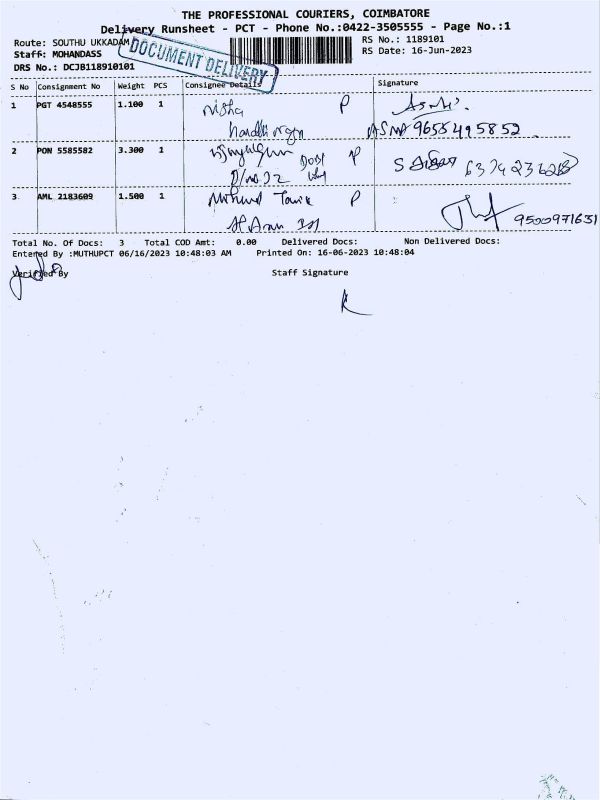 THE PROFESSIONAL COURIERS, COIMBATORE
Delivery Runsheet - PCT - Phone No.:0422-3505555 - Page No.:1
Route: SOUTHU UKKADAM
RS No.: 1189101
Staff: MOHANDASS
RS Date: 16-Jun-2023
DRS No.: DCJB118910101
DOCUMENT DELIVERY
S No Consignment No Weight PCS Consignee Details Signature
1 PGT 4548555 1.100 1 Nisha P
ASMA 9655495852
2 PON 5585582 3.300 1 P
D/no 72
S 6374236218
3 AML 2183609 1.500 1 P
9500971631
Total No. Of Docs: 3 Total COD Amt: 0.00 Delivered Docs: Non Delivered Docs:
Entered By :MUTHUPCT 06/16/2023 10:48:03 AM Printed On: 16-06-2023 10:48:04
Verified By Staff Signature